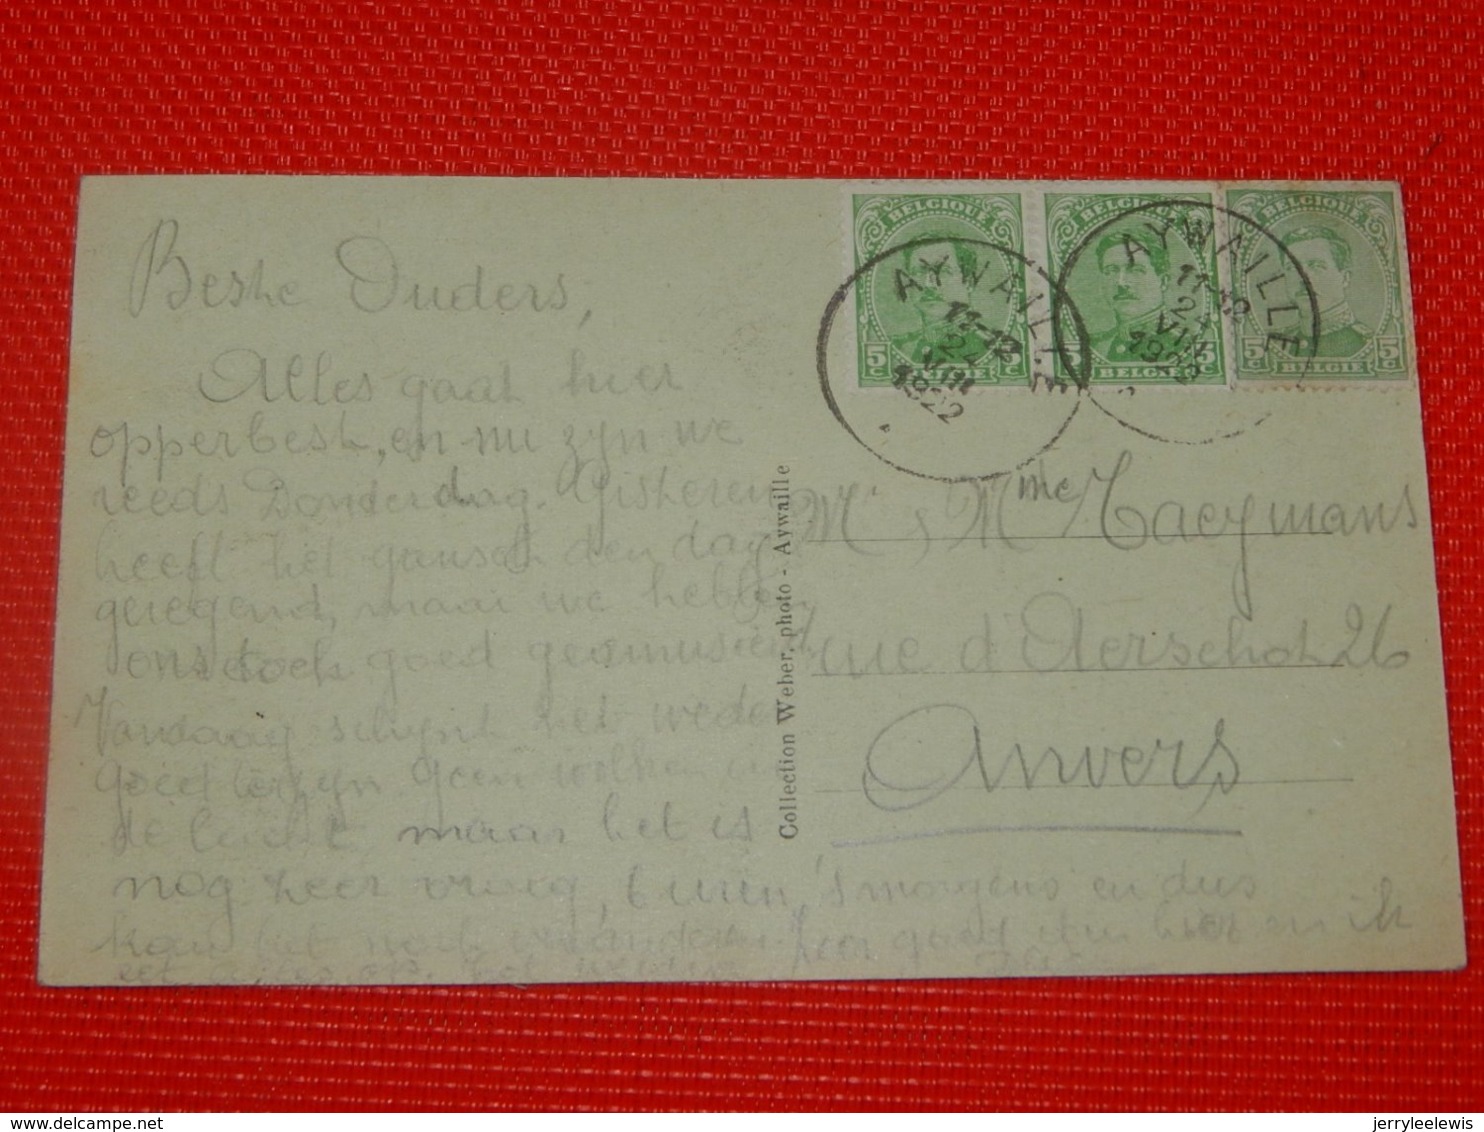 Beste Ouders,
Alles gaat hier
opperbest, en nu zyn we
reeds Donderdag. Gisteren
heeft het gansch den dag
geregend, maar we hebben
ons toch goed geamuseerd
Vandaag schynt het weder
goed te zyn geen wolken in
de lucht maar het is
nog zeer vroeg, 6 uren 's morgens en dus
kan het nog veranderen. Zeer goed eten hier en ik
BELGIQUE
5 C
BELGIE
BELGIQUE
5 C
BELGIE
BELGIQUE
5 C 5 C
BELGIE
AYWAILLE
11-12
24
VIII
1922
AYWAILLE
11-12
24
VIII
1922
Collection Weber, photo - Aywaille
Mr & Mme Haeymans
rue d'Aerschot 26
Anvers
delcampe.net
jerryleelewis